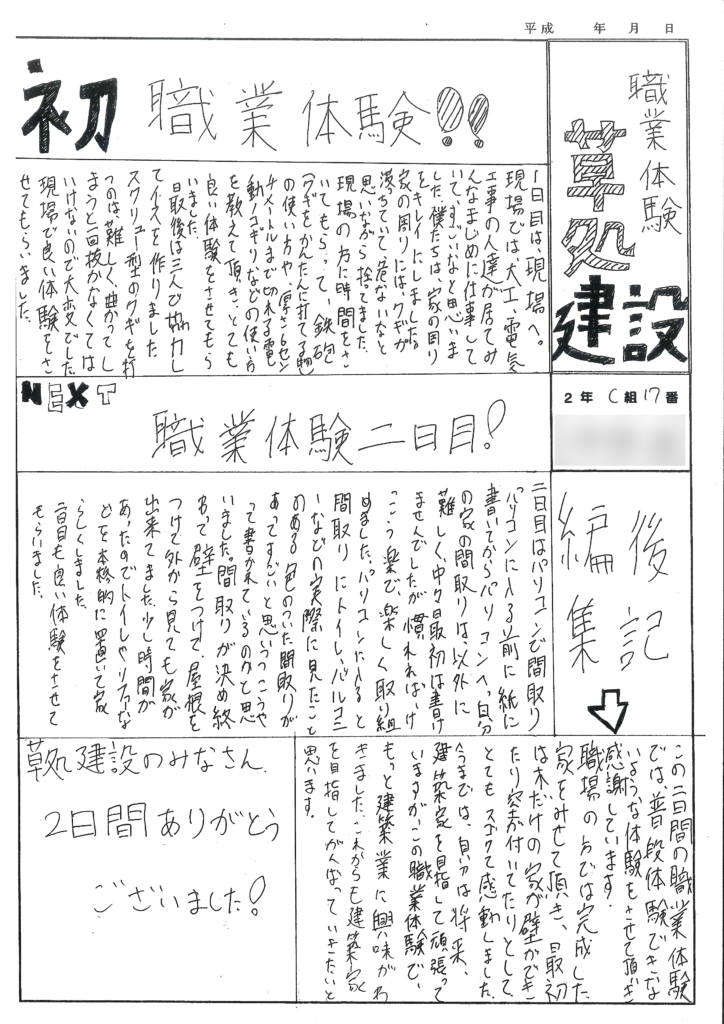 平成　　年　月　日
職業体験
草処
建設
2年 C組 17番
初 職業体験!!
1日目は、現場へ。
現場では、大工、電気
工事の人達が居てみ
んなまじめに仕事して
いて、すごいなと思いま
した。僕たちは、家の周り
をキレイにしました。
家の周りには、クギが
落ちていて危ないなと
思いながら捨てました。
現場の方に時間をさ
いてもらって、鉄砲
(クギをかんたんに打てる物)
の使い方や、厚さ6セン
チメートルまで切れる電
動ノコギリなどの使い方
を教えて頂き、とても
良い体験をさせてもら
いました。
最後は三人で協力し
てイスを作りました。
スクリュー型のクギを打
つのは、難しく、曲がってし
まうと一回抜かなくては
いけないので大変でした。
現場で良い体験をさ
せてもらいました。
NEXT
職業体験二日目!
二日目はパソコンで間取り
パソコンに入る前に紙に
書いてからパソコンへ。自分
の家の間取りは、以外に
難しく、中々最初は書け
ませんでしたが慣れればけ
っこう楽で、楽しく取り組
めました。パソコンに入ると
間取りにトイレ、バルコニ
ーなどの実際に見たこと
のある色のついた間取りが
あってすごいと思いつつこうや
って書かれているのかと思
いました。間取りが決め終
わって壁をつけて、屋根を
つけて外から見ても家が
出来てました。少し時間が
あったのでトイレやソファーな
どを本格的に置いて家
らしくしました。
二日目も良い体験をさせて
もらいました。
編集後記
この二日間の職業体験
では、普段体験できな
いような体験をさせて頂き
感謝しています。
職場の方では完成した
家をみせて頂き、最初
は木だけの家が壁ができ
たり窓が付いてたりとして、
とてもスゴクて感動しました。
今までは、自分は将来、
建築家を目指して頑張って
いますが、この職業体験で、
もっと建築業に興味がわ
きました。これからも建築家
を目指してがんばっていきたいと
思います。
草処建設のみなさん、
2日間ありがとう
ございました!